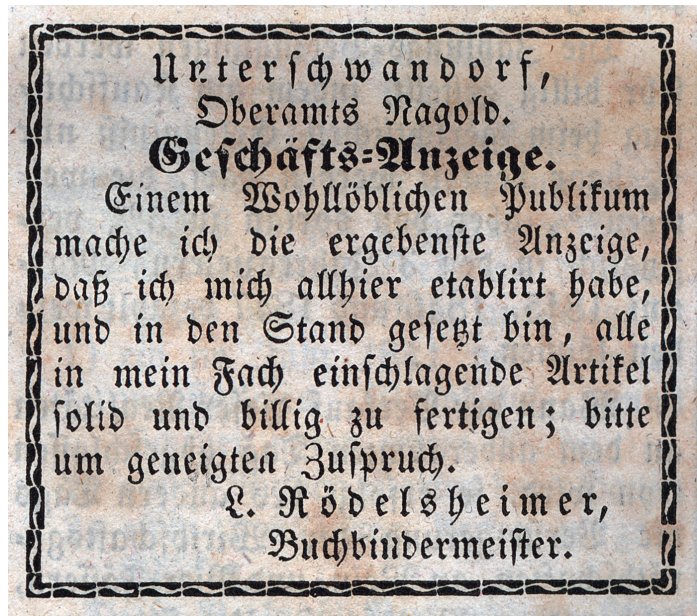 Unterschwandorf,
Oberamts Nagold.
Geschäfts-Anzeige.
Einem Wohllöblichen Publikum
mache ich die ergebenste Anzeige,
daß ich mich allhier etablirt habe,
und in den Stand gesetzt bin, alle
in mein Fach einschlagende Artikel
solid und billig zu fertigen; bitte
um geneigten Zuspruch.
L. Rödelsheimer,
Buchbindermeister.